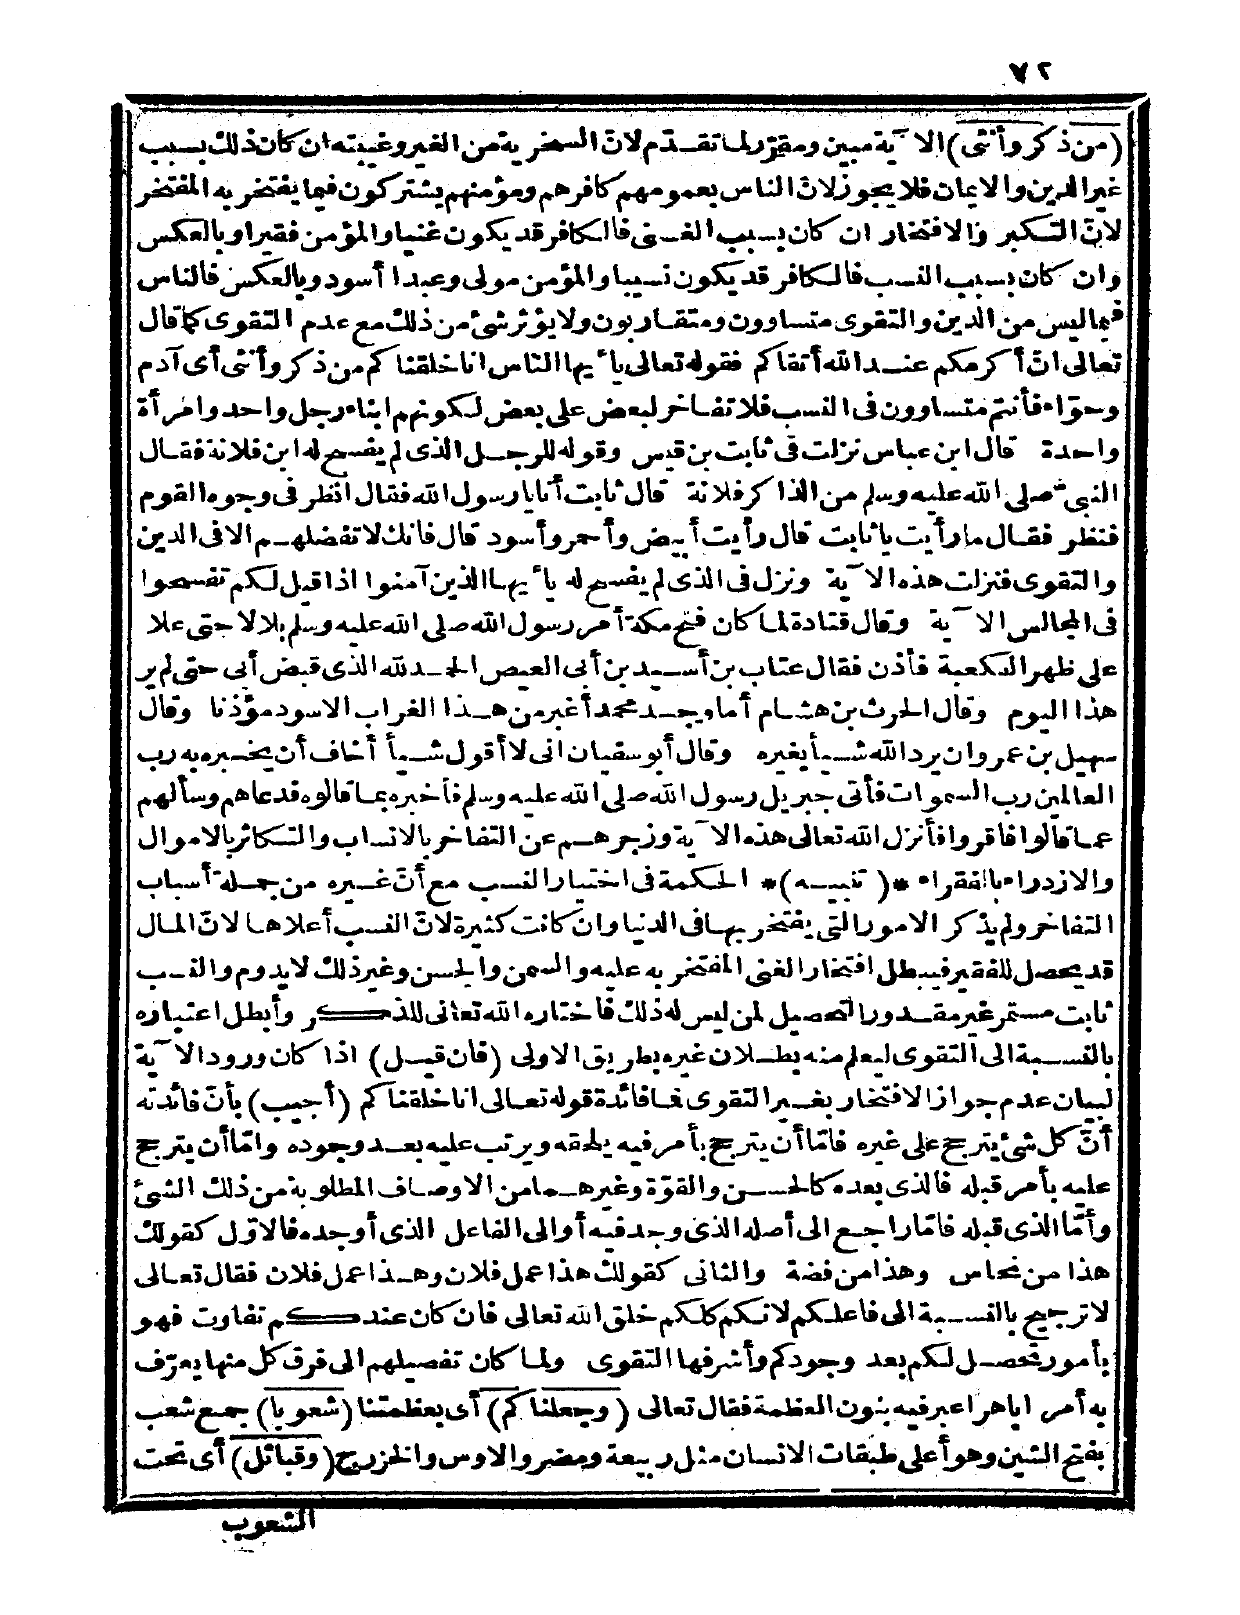 ٧٢
(من ذكر وأنثى) الآية مبين ومقرّر لما تقدّم لانّ السخرية من الغير وغيبته ان كان ذلك بسبب
غير الدين والايمان فلا يجوز لانّ الناس بعمومهم كافرهم ومؤمنهم يشتركون فيما يفتخر به المفتخر
لانّ التكبر والافتخار ان كان بسبب الغنى فالكافر قد يكون غنيا والمؤمن فقيرا وبالعكس
وان كان بسبب النسب فالكافر قد يكون نسيبا والمؤمن مولى وعبدا أسود وبالعكس فالناس
فيما ليس من الدين والتقوى متساوون ومتقاربون ولا يؤثر شئ من ذلك مع عدم التقوى كما قال
تعالى انّ أكرمكم عند الله أتقاكم فقوله تعالى يا أيها الناس انا خلقناكم من ذكر وأنثى أى آدم
وحوّاء فأنتم متساوون فى النسب فلا تفاخر لبعض على بعض لكونهم ابناء رجل واحد وامرأة
واحدة قال ابن عباس نزلت فى ثابت بن قيس وقوله للرجل الذى لم يفسح له ابن فلانة فقال
النبىّ صلى الله عليه وسلم من الذاكر فلانة قال ثابت أنا يا رسول الله فقال انظر فى وجوه القوم
فنظر فقال ما رأيت يا ثابت قال رأيت أبيض وأحمر وأسود قال فانك لا تفضلهم الا فى الدين
والتقوى فنزلت هذه الآية ونزل فى الذى لم يفسح له يا أيها الذين آمنوا اذا قيل لكم تفسحوا
فى المجالس الآية وقال قتادة لما كان فتح مكة أمر رسول الله صلى الله عليه وسلم بلالا حتى علا
على ظهر الكعبة فأذن فقال عتاب بن أسيد بن أبى العيص الحمد لله الذى قبض أبى حتى لم ير
هذا اليوم وقال الحرث بن هشام أما وجد محمد أغير من هذا الغراب الاسود مؤذنا وقال
سهيل بن عمرو ان يرد الله شيأ يغيره وقال أبو سفيان انى لا أقول شيأ أخاف أن يخبره به رب
العالمين رب السموات فأتى جبريل رسول الله صلى الله عليه وسلم فأخبره بما قالوه فدعاهم وسألهم
عما قالوا فاقروا فأنزل الله تعالى هذه الآية وزجرهم عن التفاخر بالانساب والتكاثر بالاموال
والازدراء بالفقراء *(تنبيه)* الحكمة فى اختيار النسب مع أنّ غيره من جملة أسباب
التفاخر ولم يذكر الامور التى يفتخر بها فى الدنيا وان كانت كثيرة لانّ النسب أعلاها لانّ المال
قد يحصل للفقير فيبطل افتخار الغنى المفتخر به عليه والسمن والحسن وغير ذلك لا يدوم والنسب
ثابت مستمر غير مقدور التحصيل لمن ليس له ذلك فاختاره الله تعالى للذكر وأبطل اعتباره
بالنسبة الى التقوى ليعلم منه بطلان غيره بطريق الاولى (فان قيل) اذا كان ورود الآية
لبيان عدم جواز الافتخار بغير التقوى فما فائدة قوله تعالى انا خلقناكم (أجيب) بأنّ فائدته
أنّ كل شئ يترجح على غيره فامّا أن يترجح بأمر فيه يلحقه ويرتب عليه بعد وجوده وامّا أن يترجح
عليه بأمر قبله فالذى بعده كالحسن والقوّة وغيرهما من الاوصاف المطلوبة من ذلك الشئ
وأمّا الذى قبله فامّا راجع الى أصله الذى وجد فيه أو الى الفاعل الذى أوجده فالاوّل كقولك
هذا من نحاس وهذا من فضة والثانى كقولك هذا عمل فلان وهذا عمل فلان فقال تعالى
لا ترجيح بالنسبة الى فاعلكم لانكم كلكم خلق الله تعالى فان كان عندكم تفاوت فهو
بأمور تحصل لكم بعد وجودكم وأشرفها التقوى ولما كان تفصيلهم الى فرق كل منها يعرّف
به أمر اباهرا عبر فيه بنون العظمة فقال تعالى (وجعلناكم) أى بعظمتنا (شعوبا) جمع شعب
بفتح الشين وهو أعلى طبقات الانسان مثل ربيعة ومضر والاوس والخزرج (وقبائل) أى تحت
الشعوب